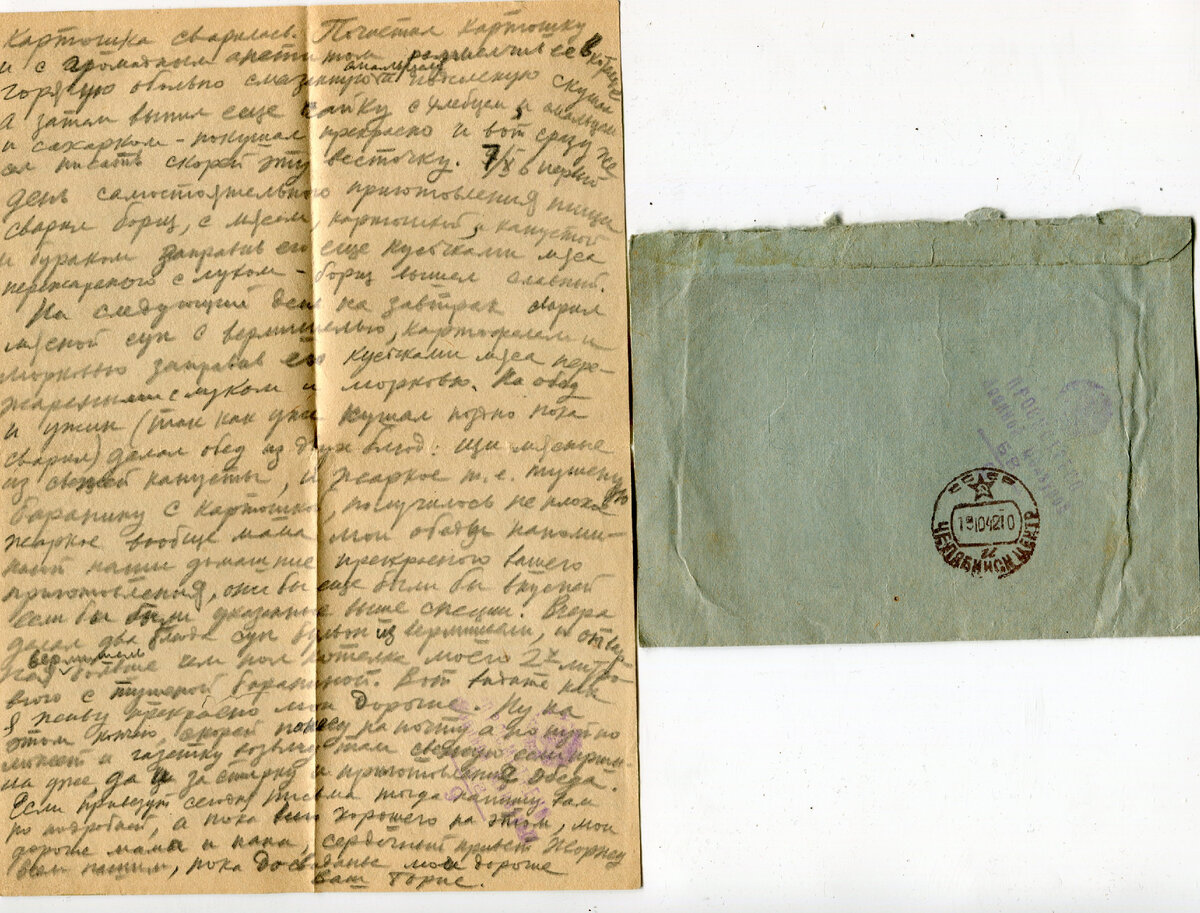 Картошка сварилась. Почистил картошку
и с громадным аппетитом размельчив ее в котелке
горячую обильно смазанную смальцем и посоленую скушал
А затем выпил еще чайку с хлебцем, и смальцем
и сахарком - покушал прекрасно и вот сразу же
сел писать скорей эту весточку. 7/X в первый
день самостоятельного приготовления пищи
сварил борщ, с мясом, картошкой, капустой
и бураком заправив его еще кусочками мяса
пережареного с луком - борщ вышел славный.
На следующий день на завтрак сварил
мясной суп с вермишелью, картофелем и
морковью заправив его кусочками мяса пере-
жареными с луком и морковью. На обед
и ужин (так как уже кушал поздно пока
сварил) делал обед из двух блюд: Щи мясные
из свежей капусты и жаркое т.е. тушеную
баранину с картошкой, получилось не плохое
жаркое вообще мама мои обеды напоми-
нают наши домашние прекрасного вашего
приготовления, они бы еще были бы вкусней
если бы были указанные выше специи. Вчера
делал два блюда суп бульон из вермишели, и
вермишель больше чем пол котелка моего 2х литро-
вого с тушеной бараниной. Вот видите как
я живу прекрасно мои дорогие. Ну на
этом кончаю, скорей понесу на почту а по пути но
может и газетку возьму там свежую если
на уже да и за стирку и приготовления обеда.
Если привезут сегодня письма тогда напишу вам
по подробней, а пока всего хорошего на этом, мои
дорогие мама и папа, сердечный привет Жоржу
всем нашим, пока до свиданье мои дорогие
ваш Борис.
ПРОСМОТРЕНО
Военной Цензурой
ЧЕЛЯБИНСК ЦЕНТР
13 10 42 10
и